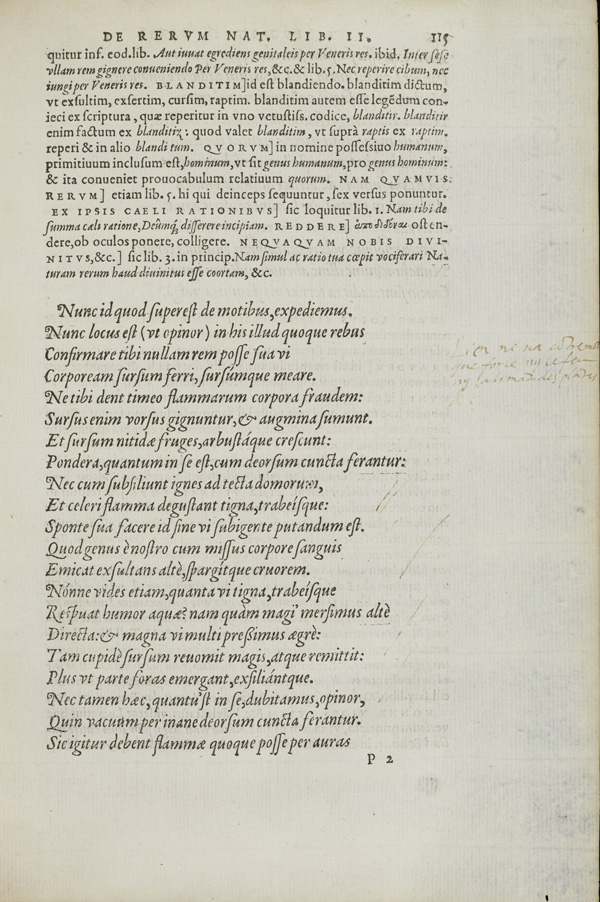 DE RERVM NAT. LIB. II. 115
quitur inf. eod.lib. Aut iuuat egrediens genitaleis per Veneris res. ibid. Inter sese
vllam rem gignere conueniendo Per Veneris res,&c.& lib.5. Nec reperire cibum, nec
iungi per Veneris res. BLANDITIM]id est blandiendo. blanditim dictum,
vt exsultim, exsertim, cursim, raptim. blanditim autem esse legēdum con-
ieci ex scriptura, quæ reperitur in vno vetustiss. codice, blanditir. blanditir
enim factum ex : quod valet blanditim, vt suprà raptis ex raptim.
reperi & in alio blandi tum. QVORVM] in nomine possessiuo humanum,
primitiuum inclusum est, hominum, vt sit genus humanum, pro genus hominum:
& ita conueniet prouocabulum relatiuum quorum. NAM QVAMVIS
RERVM] etiam lib. 5. hi qui deinceps sequuntur, sex versus ponuntur.
EX IPSIS CAELI RATIONIBVS] sic loquitur lib. 1. Nam tibi de
summa cæli ratione, Deûmq; disserere incipiam. REDDERE] osten-
dere, ob oculos ponere, colligere. NEQVAQVAM NOBIS DIVI-
NITVS,&c.] sic lib. 3. in princip. Nam simul ac ratio tua cœpit vociferari Na-
turam rerum haud diuinitus esse coortam, &c.
Nunc id quod superest de motibus, expediemus.
Nunc locus est (vt opinor) in his illud quoque rebus
Confirmare tibi nullam rem posse sua vi
Corpoream sursum ferri, sursúmque meare.
Ne tibi dent timeo flammarum corpora fraudem:
Sursus enim vorsus gignuntur, & augmina sumunt.
Et sursum nitidæ fruges, arbustáque crescunt:
Pondera, quantum in se est, cum deorsum cuncta ferantur:
Nec cum subsiliunt ignes ad tecta domorum,
Et celeri flamma degustant tigna, trabeísque:
Sponte sua facere id sine vi subigente putandum est.
Quod genus è nostro cum missus corpore sanguis
Emicat exsultans altè, spargítque cruorem.
Nónne vides etiam, quanta vi tigna, trabeísque
Respuat humor aquæ? nam quàm magi' mersimus altè
Directa: & magna vi multi pressimus ægrè:
Tam cupidè sursum reuomit magis, atque remittit:
Plus vt parte foras emergant, exsiliántque.
Nec tamen hæc, quantu'st in se, dubitamus, opinor,
Quin vacuum per inane deorsum cuncta ferantur.
Sic igitur debent flammæ quoque posse per auras
P 2